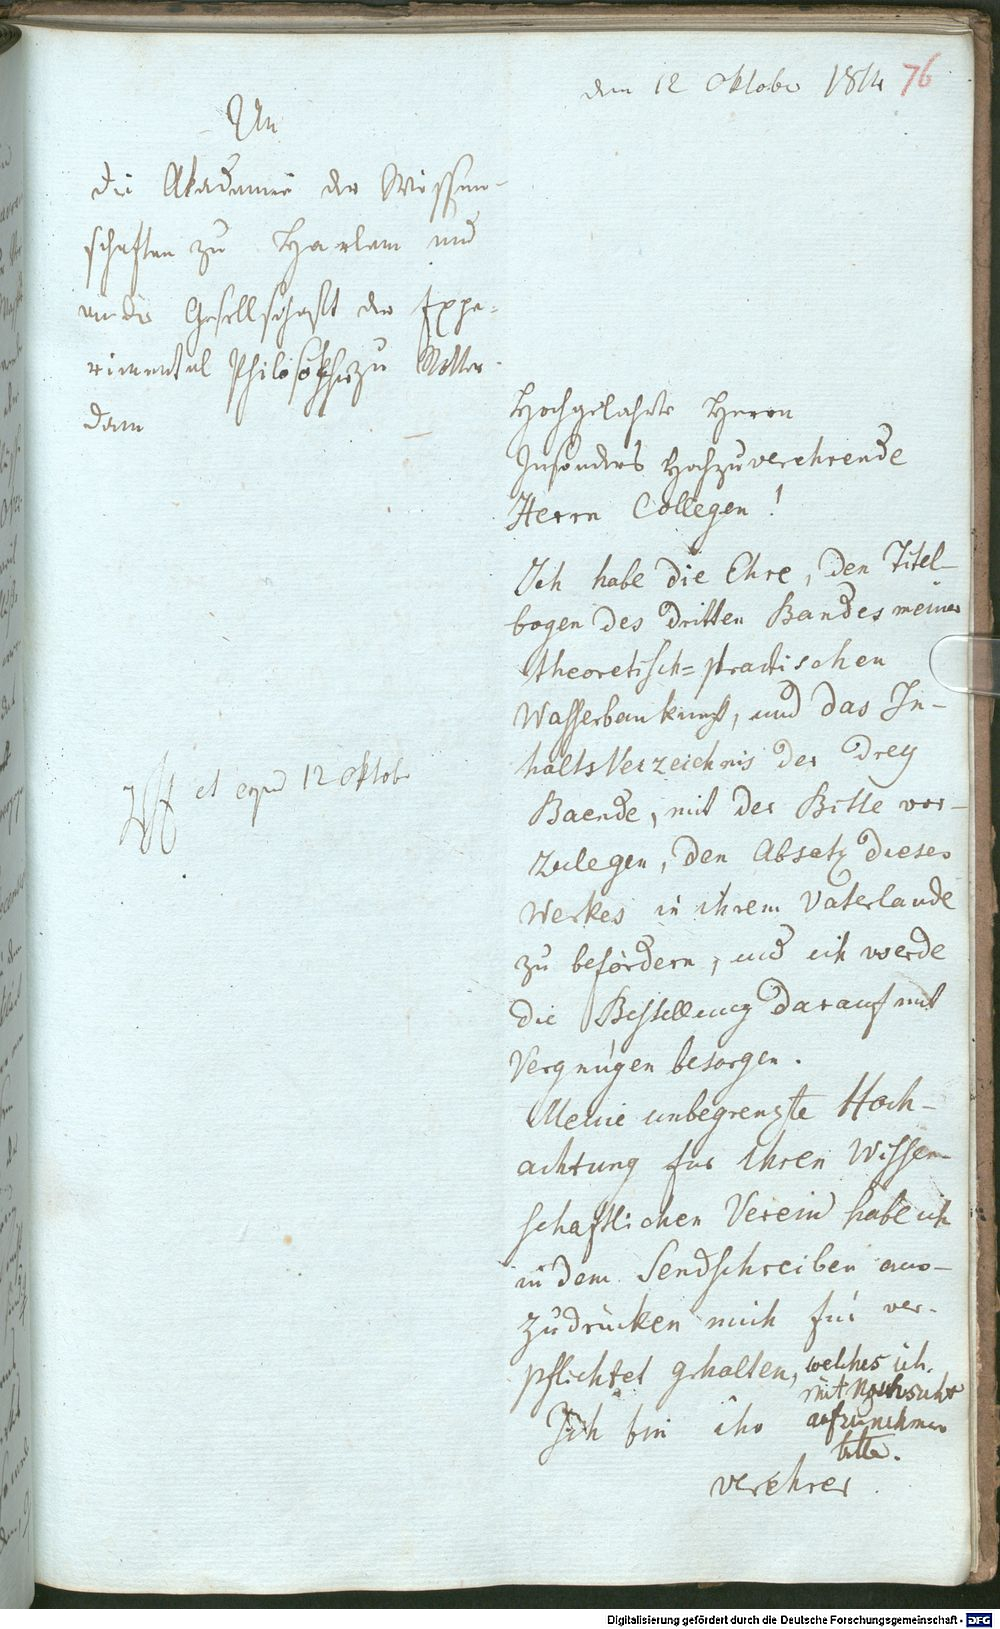 den 12 Oktober 1814 76
An
die Akademie der Wissen-
schaften zu Harlem und
an die Gesellschaft der Expe-
rimental Philosophie zu Rotter-
dam
Hochgelahrte Herrn
Insonders Hochzuverehrende
Herrn Collegen!
Ich habe die Ehre, den Titel-
bogen des dritten Bandes meiner
theoretisch=practischen
Wasserbaukunst, und das In-
halts Verzeichnis der Drey
Baende, mit der Bitte vor-
zulegen, den Absatz dieses
Werkes in ihrem Vaterlande
zu befördern, und ich werde
die Bestellung darauf mit
Vergnügen besorgen.
Meine unbegrenzte Hoch-
achtung für Ihren Wissen-
schaftlichen Verein habe ich
in dem Sendschreiben aus-
zudrücken mich für ver-
pflichtet gehalten, welches ich
mit Nachsicht
aufzunehmen
bitte.
Ich bin ihr
Verehrer
et exped 12 Oktobr
Digitalisierung gefördert durch die Deutsche Forschungsgemeinschaft - DFG